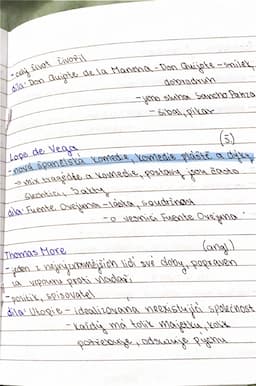 - celý život živořil
díla: Don Quijote de la Mancha - Don Quijote - smílek,
dobrodruh
- jeho sluha Sancho Panza
- šibal, pikar
(š)
Lope de Vega
- nová španělská komedie, komedie pláště a dýky
→ mix tragédie a komedie, postavy jsou často
šlechtici, 3 akty
díla: Fuente Ovejuna - láska, soudržnost
- o vesnici Fuente Ovejuna
(angl.)
Thomas More
- jeden z nejvýznamnějších lidí své doby, popraven
za vzpouru proti vladaři
- politik, spisovatel
díla: Utopie - idealizovaná neexistující společnost
- každý má tolik majetku, kolik
potřebuje, odsuzuje pýchu